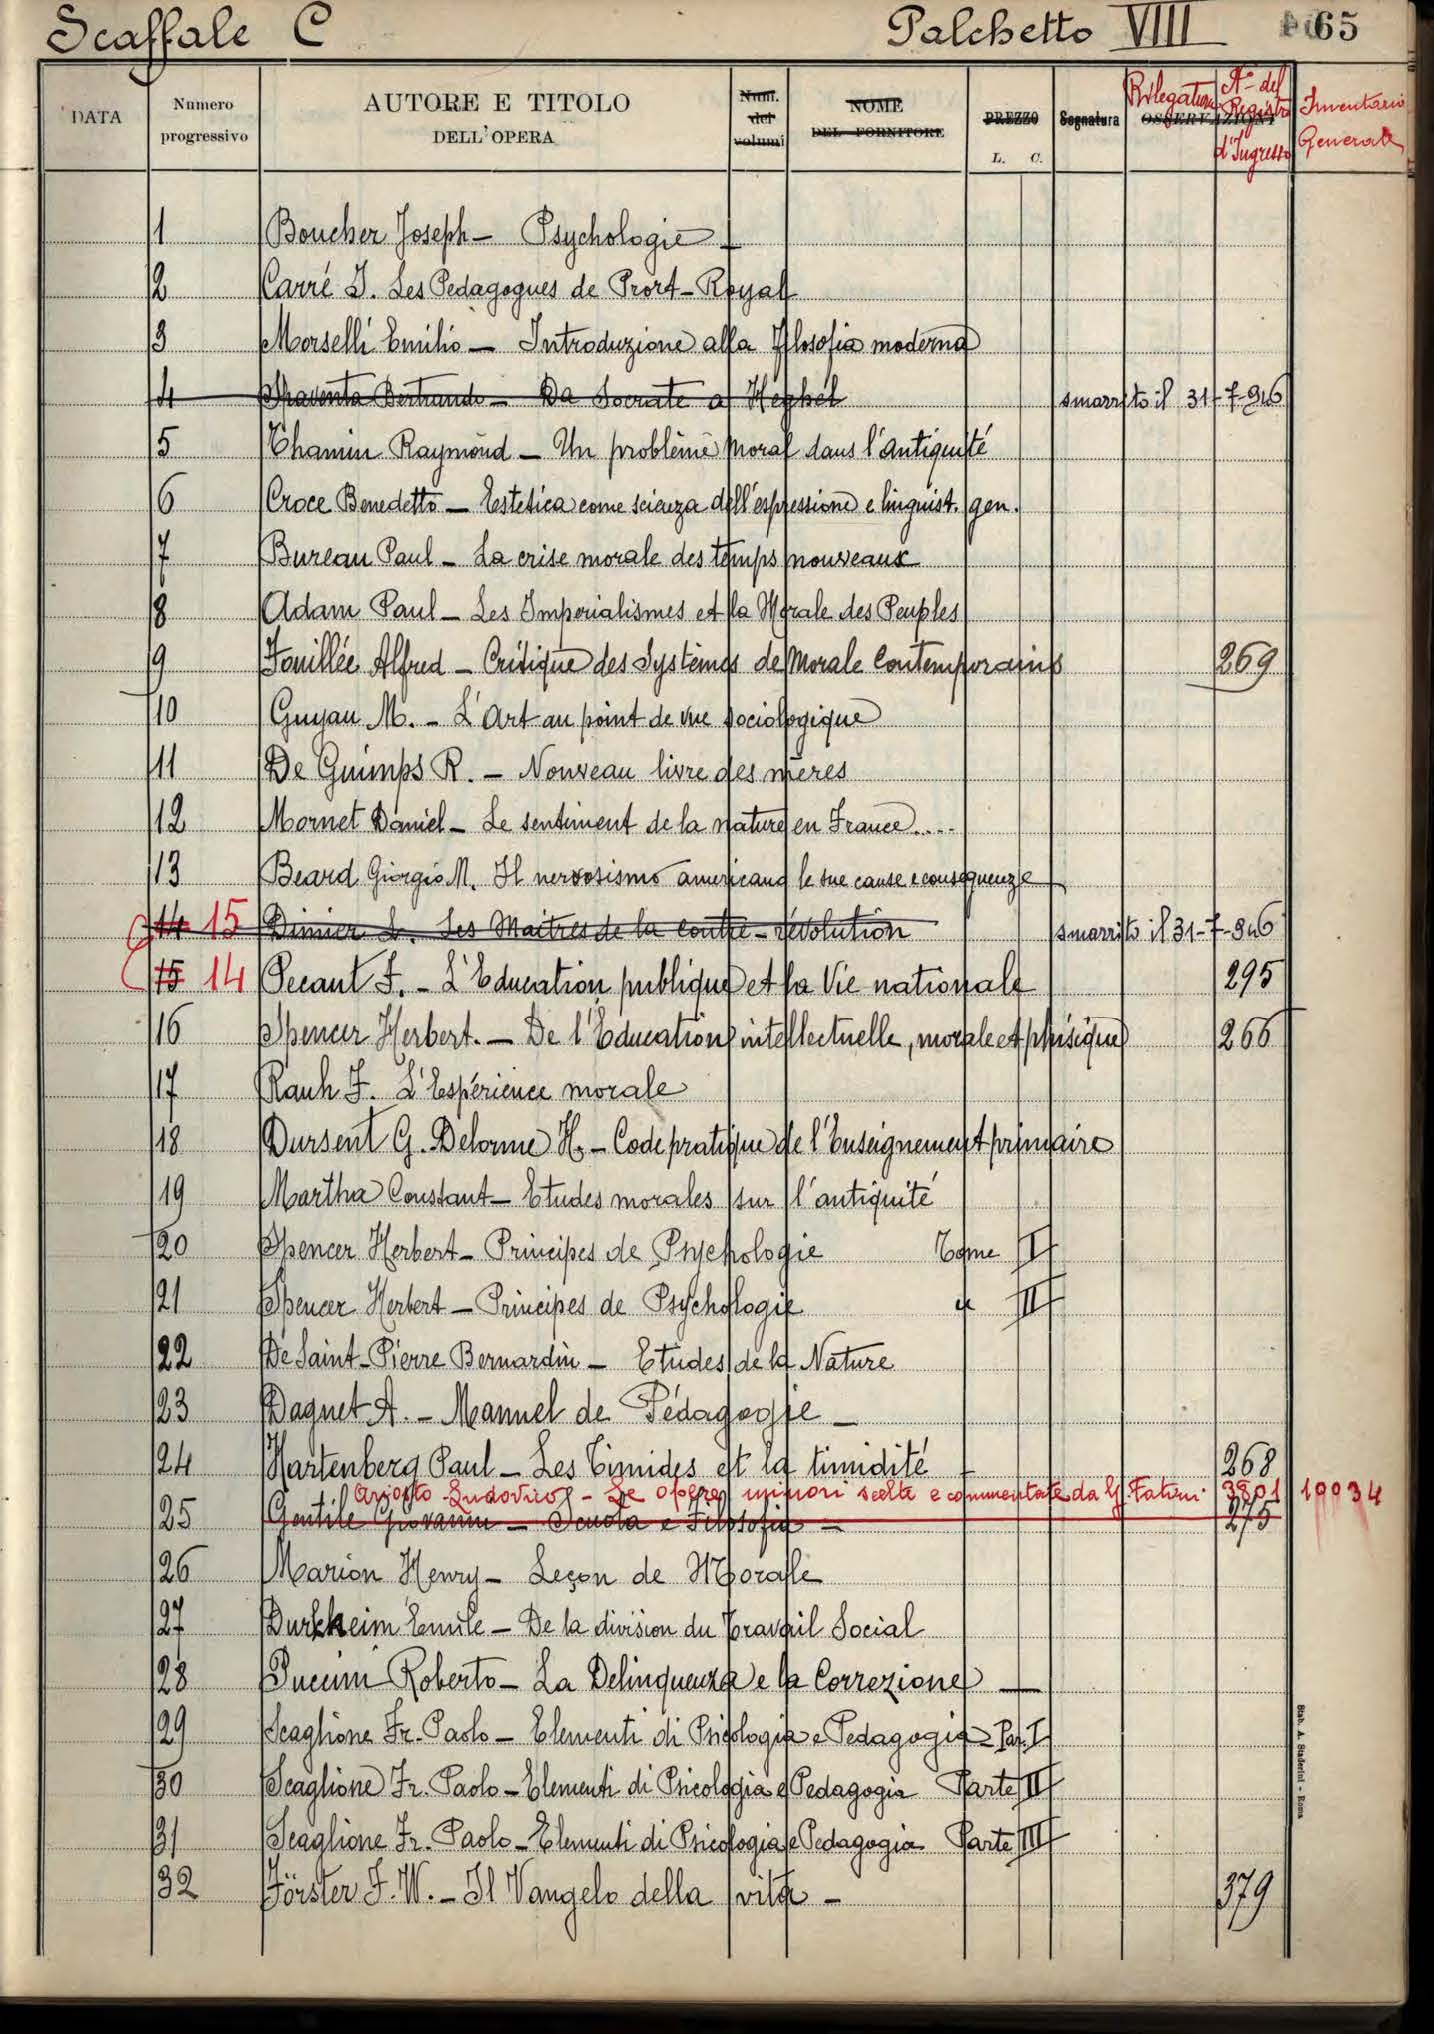 Scaffale C Palchetto VIII 65
DATA Numero progressivo AUTORE E TITOLO DELL'OPERA Num. dei volumi NOME DEL FORNITORE PREZZO L. C. Segnatura OSSERVAZIONI Rilegatura N° del Registro d'Ingresso Inventario Generale
1 Boucher Joseph – Psychologie –
2 Carré I. Les Pedagogues de Prort-Royal
3 Morselli Emilio – Introduzione alla filosofia moderna
4 Spaventa Bertrando – Da Socrate a Heghel smarrito il 31-7-946
5 Thamin Raymond – Un problème moral dans l'antiquité
6 Croce Benedetto – Estetica come scienza dell'espressione e linguist. gen.
7 Bureau Paul – La crise morale des temps nouveaux
8 Adam Paul – Les Imperialismes et la Morale des Peuples
9 Fouillée Alfred – Critique des Systèmes de Morale Contemporains 269
10 Guyau M. – L'Art au point de vue sociologique
11 De Guimps R. – Nouveau livre des mères
12 Mornet Daniel – Le sentiment de la nature en France....
13 Beard Giorgio M. Il nervosismo americano le sue cause e conseguenze
14 15 Dimier L. Les Maitres de la contre-révolution smarrito il 31-7-946
15 14 Pecaut F. – L'Education publique et la Vie nationale 295
16 Spencer Herbert. – De l'Education intellectuelle, morale et phisique 266
17 Rauh F. L'Espérience morale
18 Dursent G. Delorme H. – Code pratique de l'Enseignement primaire
19 Martha Constant – Etudes morales sur l'antiquité
20 Spencer Herbert – Principes de Psychologie Tome I
21 Spencer Herbert – Principes de Psychologie " II
22 De Saint-Pierre Bernardin – Etudes de la Nature
23 Daguet A. – Manuel de Pédagogie –
24 Hartenberg Paul – Les Timides et la timidité 268
Ariosto Ludovico – Le opere minori scelte e commentate da G. Fatini 3801 10034
25 Gentile Giovanni – Scuola e Filosofia – 275
26 Marion Henry – Leçon de Morale
27 Durkheim Emile – De la division du Travail Social
28 Puccini Roberto – La Delinquenza e la Correzione –
29 Scaglione Fr. Paolo – Elementi di Psicologia e Pedagogia – Par. I
30 Scaglione Fr. Paolo – Elementi di Psicologia e Pedagogia Parte II
31 Scaglione Fr. Paolo – Elementi di Psicologia e Pedagogia Parte III
32 Förster F. W. – Il Vangelo della vita – 379
Stab. A. Staderini - Roma